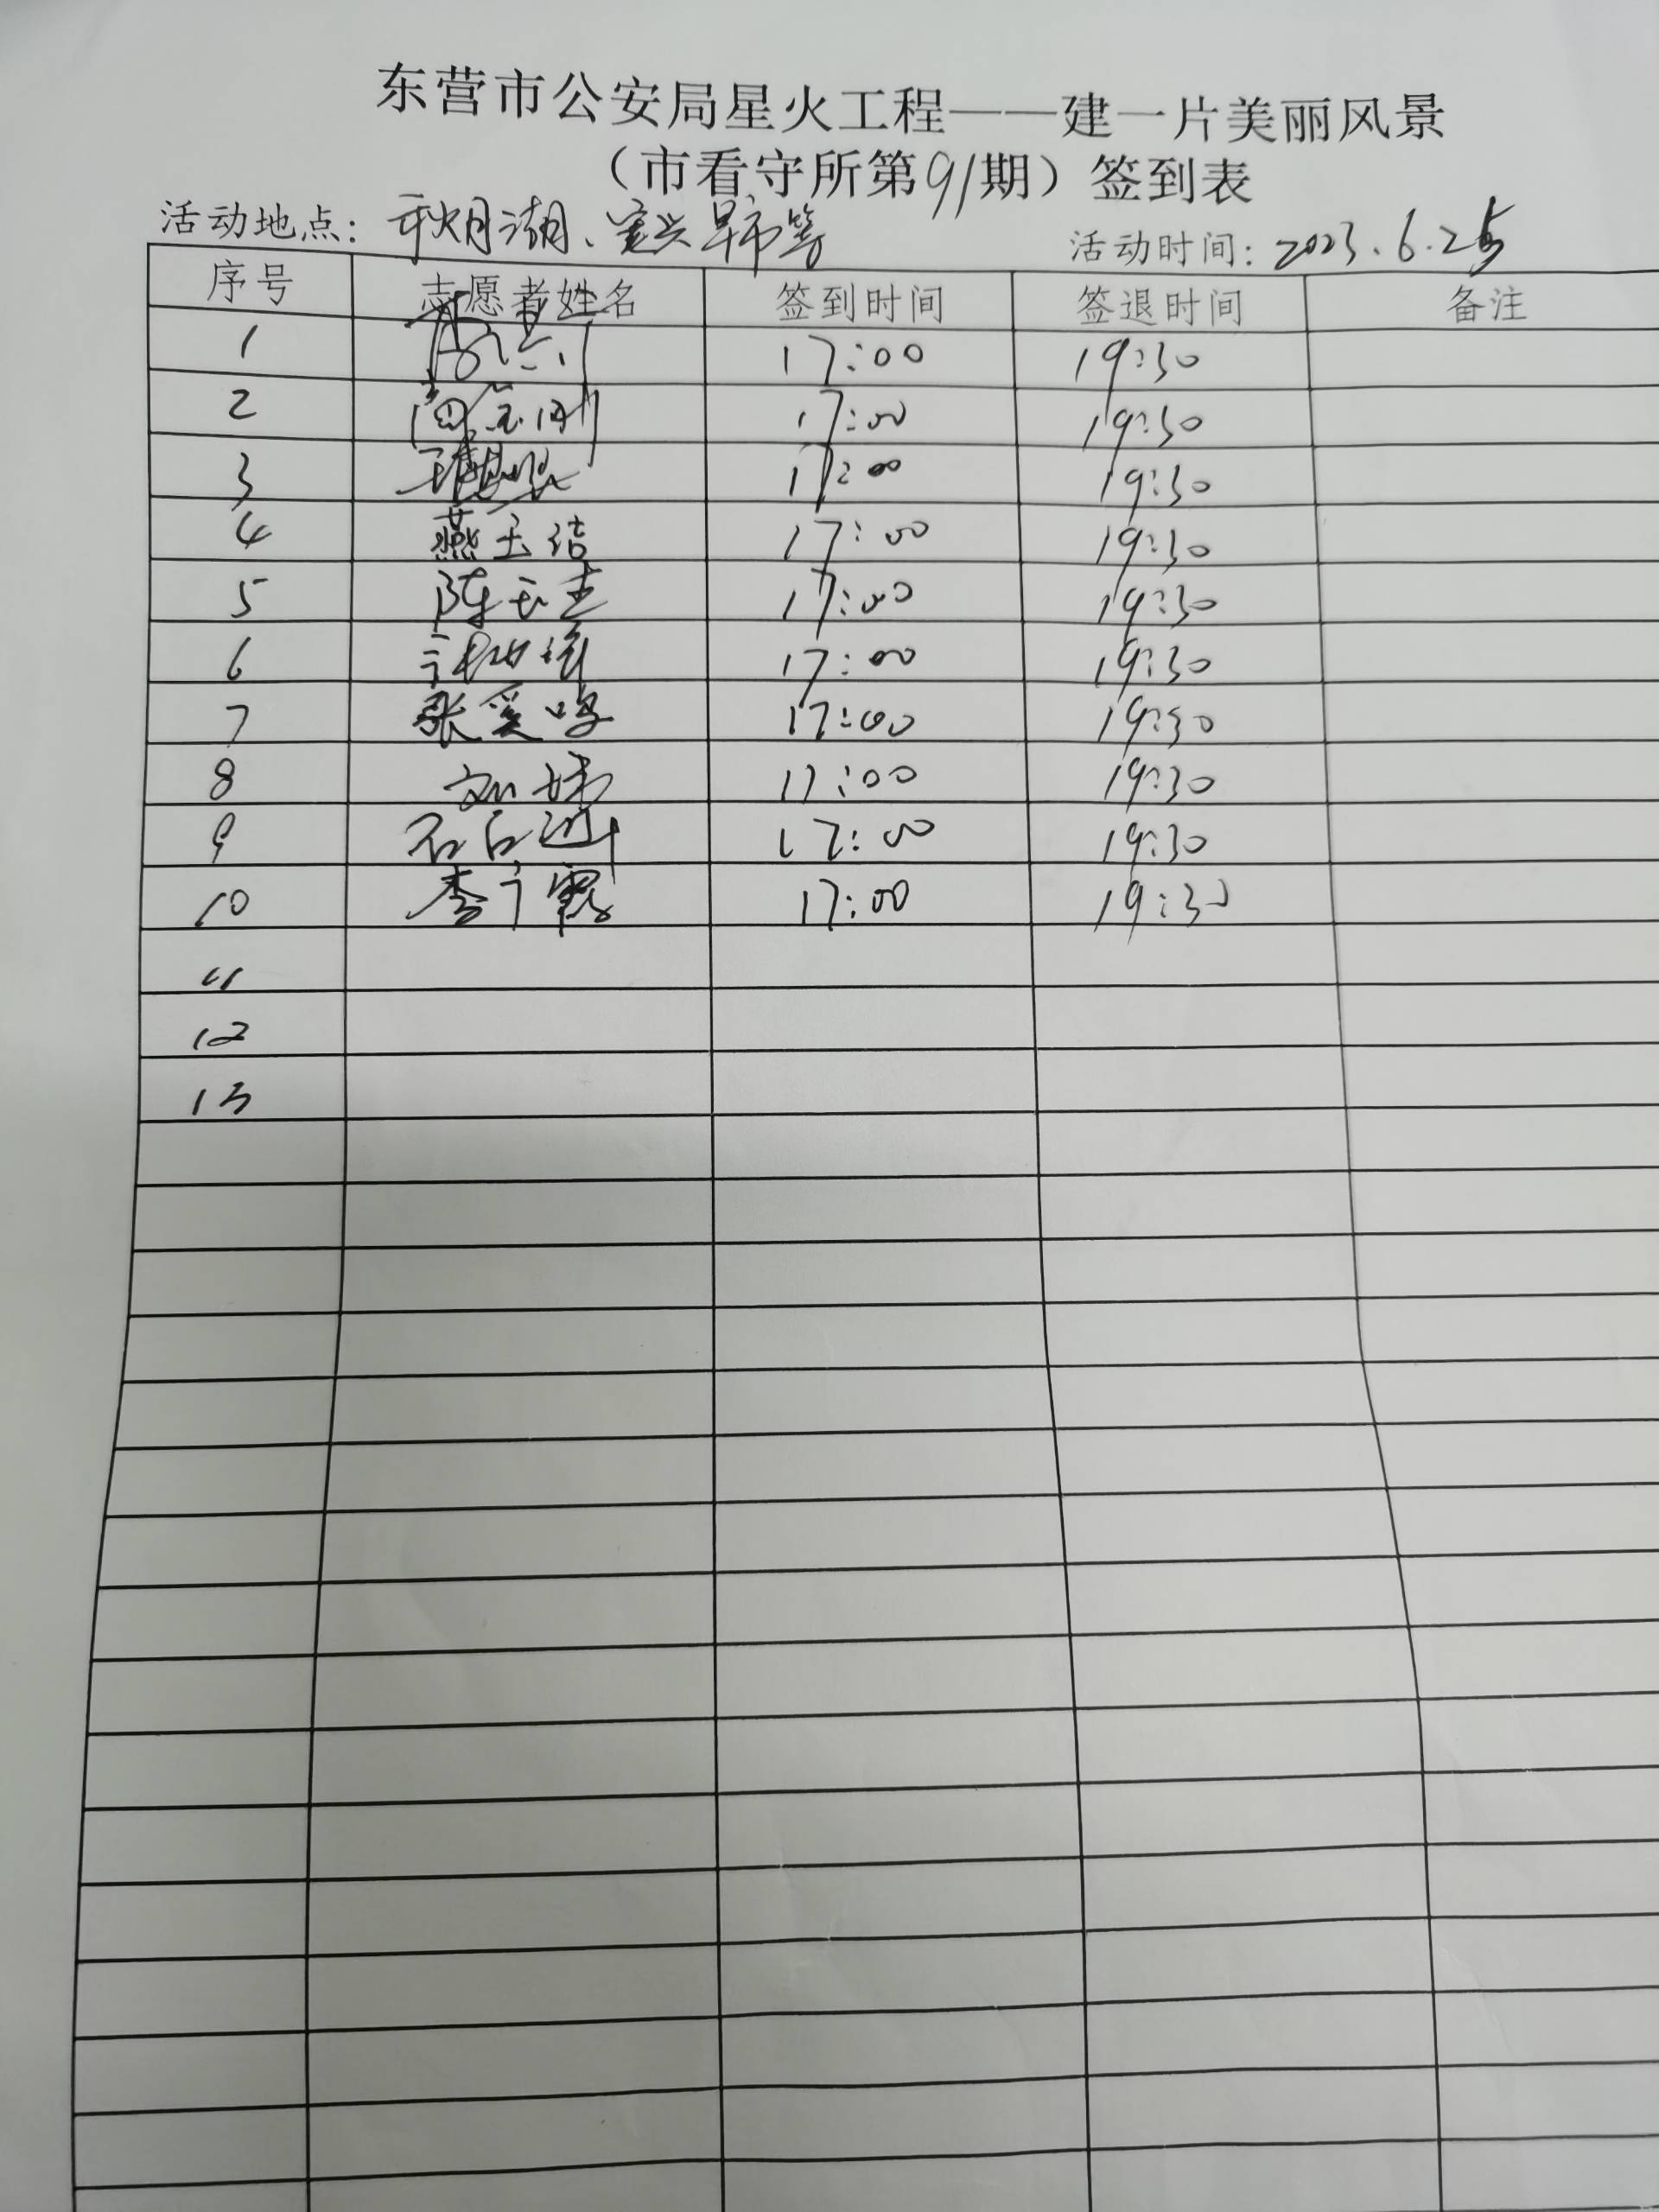 东营市公安局星火工程——建一片美丽风景
（市看守所第91期）签到表
活动地点：明月湖、宝兴早市等 活动时间：2023.6.25
序号 志愿者姓名 签到时间 签退时间 备注
1 17:00 19:30
2 17:00 19:30
3 17:00 19:30
4 燕玉洁 17:00 19:30
5 陈玉杰 17:00 19:30
6 17:00 19:30
7 张爱鸣 17:00 19:30
8 刘 17:00 19:30
9 石 17:00 19:30
10 李广霞 17:00 19:30
11
12
13